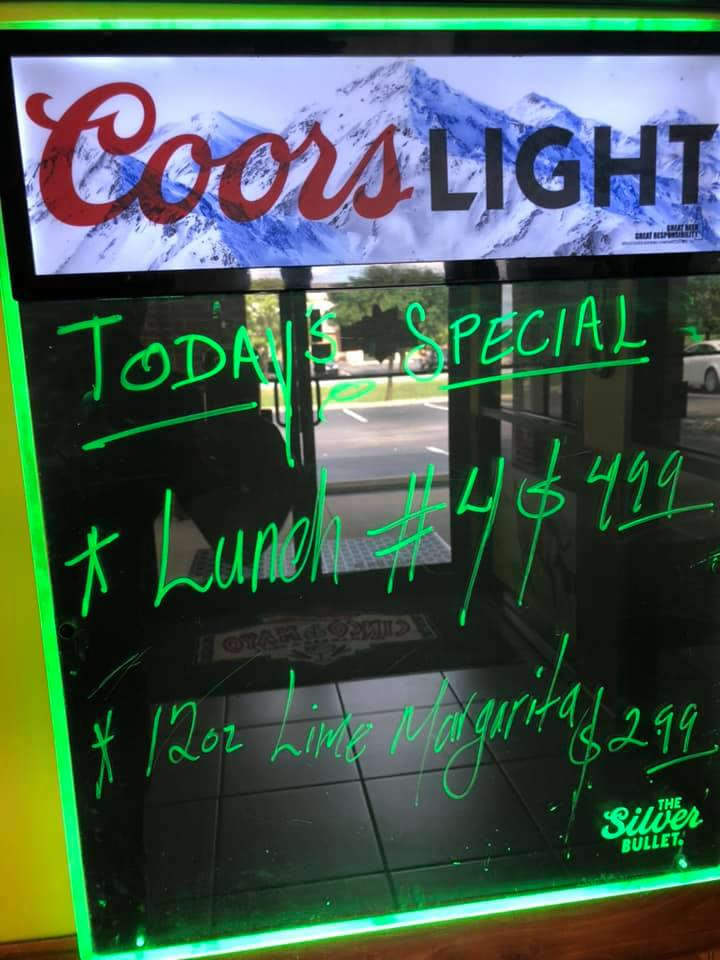 Coors LIGHT
GREAT BEER
GREAT RESPONSIBILITY
TODAY'S SPECIAL
* Lunch #4 $ 499
* 12oz Lime Margarita $2.99
THE
Silver
BULLET.
CINCO DE MAYO